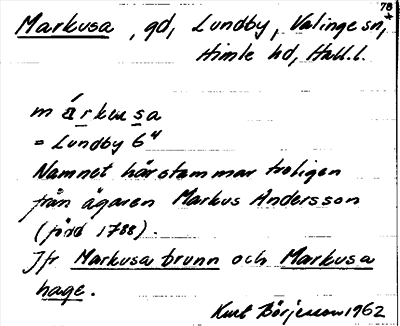 78
Markusa, gd, Lundby, Valinge sn,
Himle hd, Hall. l.
márkusa
= Lundby 6⁴
Namnet härstammar troligen
från ägaren Markus Andersson
(född 1788).
Jfr Markusa brunn och Markusa
hage.
Kurt Börjesson 1962